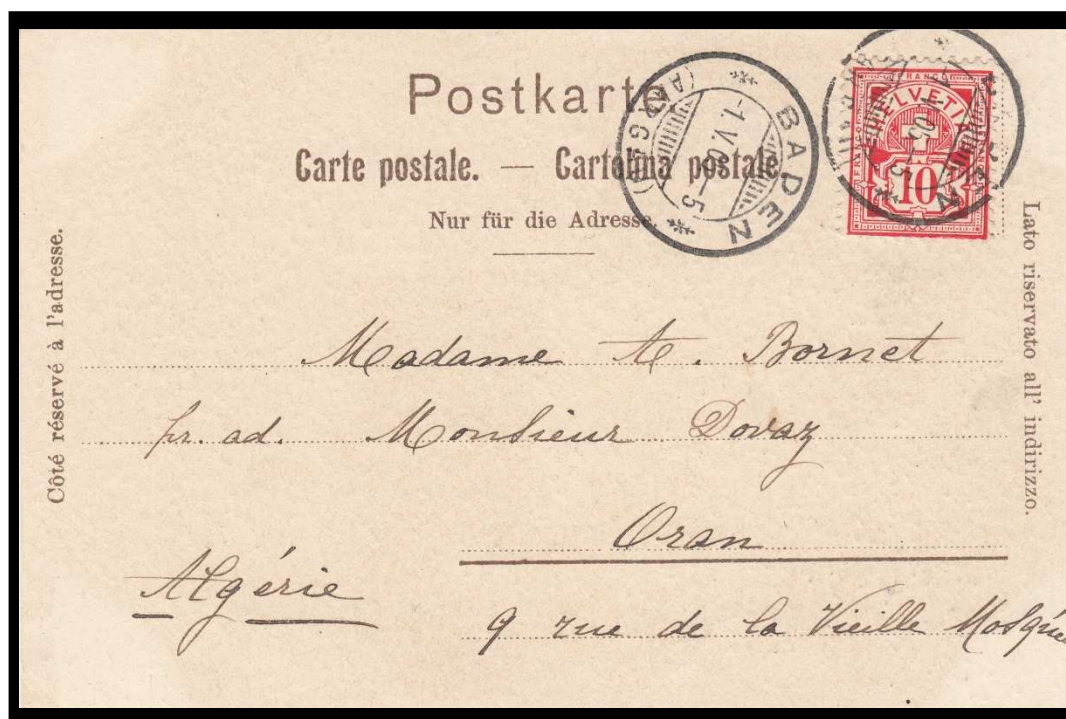 Postkarte
Carte postale. — Cartolina postale.
Nur für die Adresse.
Côté réservé à l'adresse.
Lato riservato all' indirizzo.
BADEN
(AARGAU)
-1.V.05.-5
FRANCO
HELVETIA
10
Madame A. Bornet
pr. ad. Monsieur Dovaz
Oran
Algérie
9 rue de la Vieille Mosquée